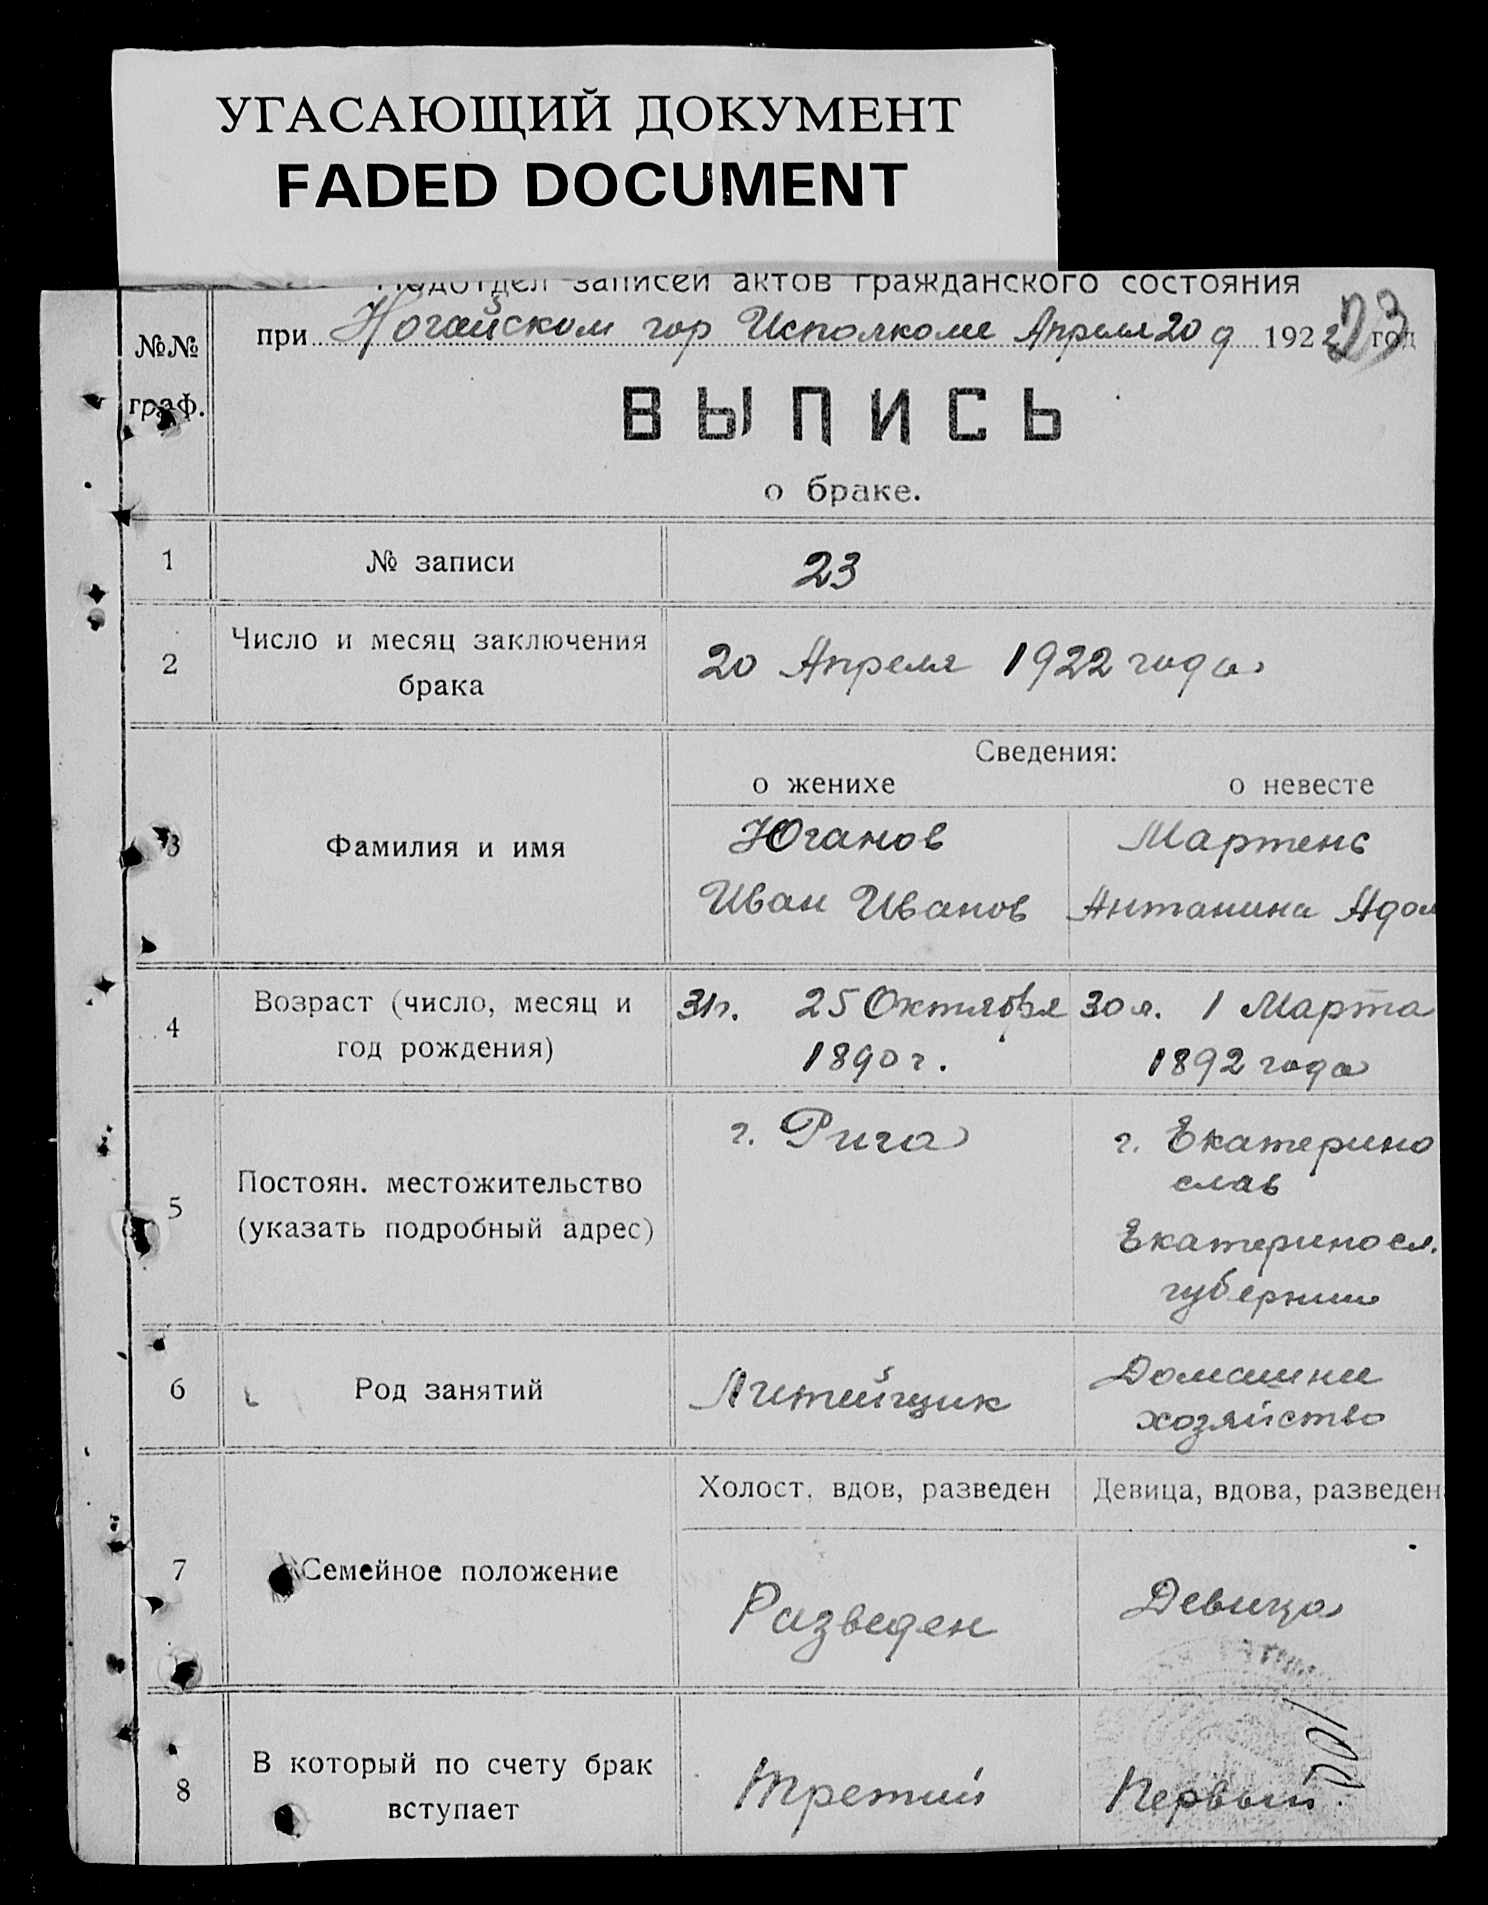 УГАСАЮЩИЙ ДОКУМЕНТ
FADED DOCUMENT
Подотдел записей актов гражданского состояния
при Ногайском гор Исполкоме Апреля 20 д 1922 год
23
№№
граф.
ВЫПИСЬ
о браке.
1 № записи 23
2 Число и месяц заключения
брака
20 Апреля 1922 года
Сведения:
о женихе о невесте
3 Фамилия и имя
Юганов
Иван Иванов
Мартенс
Антанина Адол
4 Возраст (число, месяц и
год рождения)
31г. 25 Октября
1890 г.
30 л. 1 Марта
1892 года
5 Постоян. местожительство
(указать подробный адрес)
г. Рига
г. Екатерино
слав
Екатериносл.
губернии
6 Род занятий
Литейщик
Домашнее
хозяйство
7 Семейное положение
Холост, вдов, разведен
Разведен
Девица, вдова, разведен
Девица
8 В который по счету брак
вступает
Третий
Первый